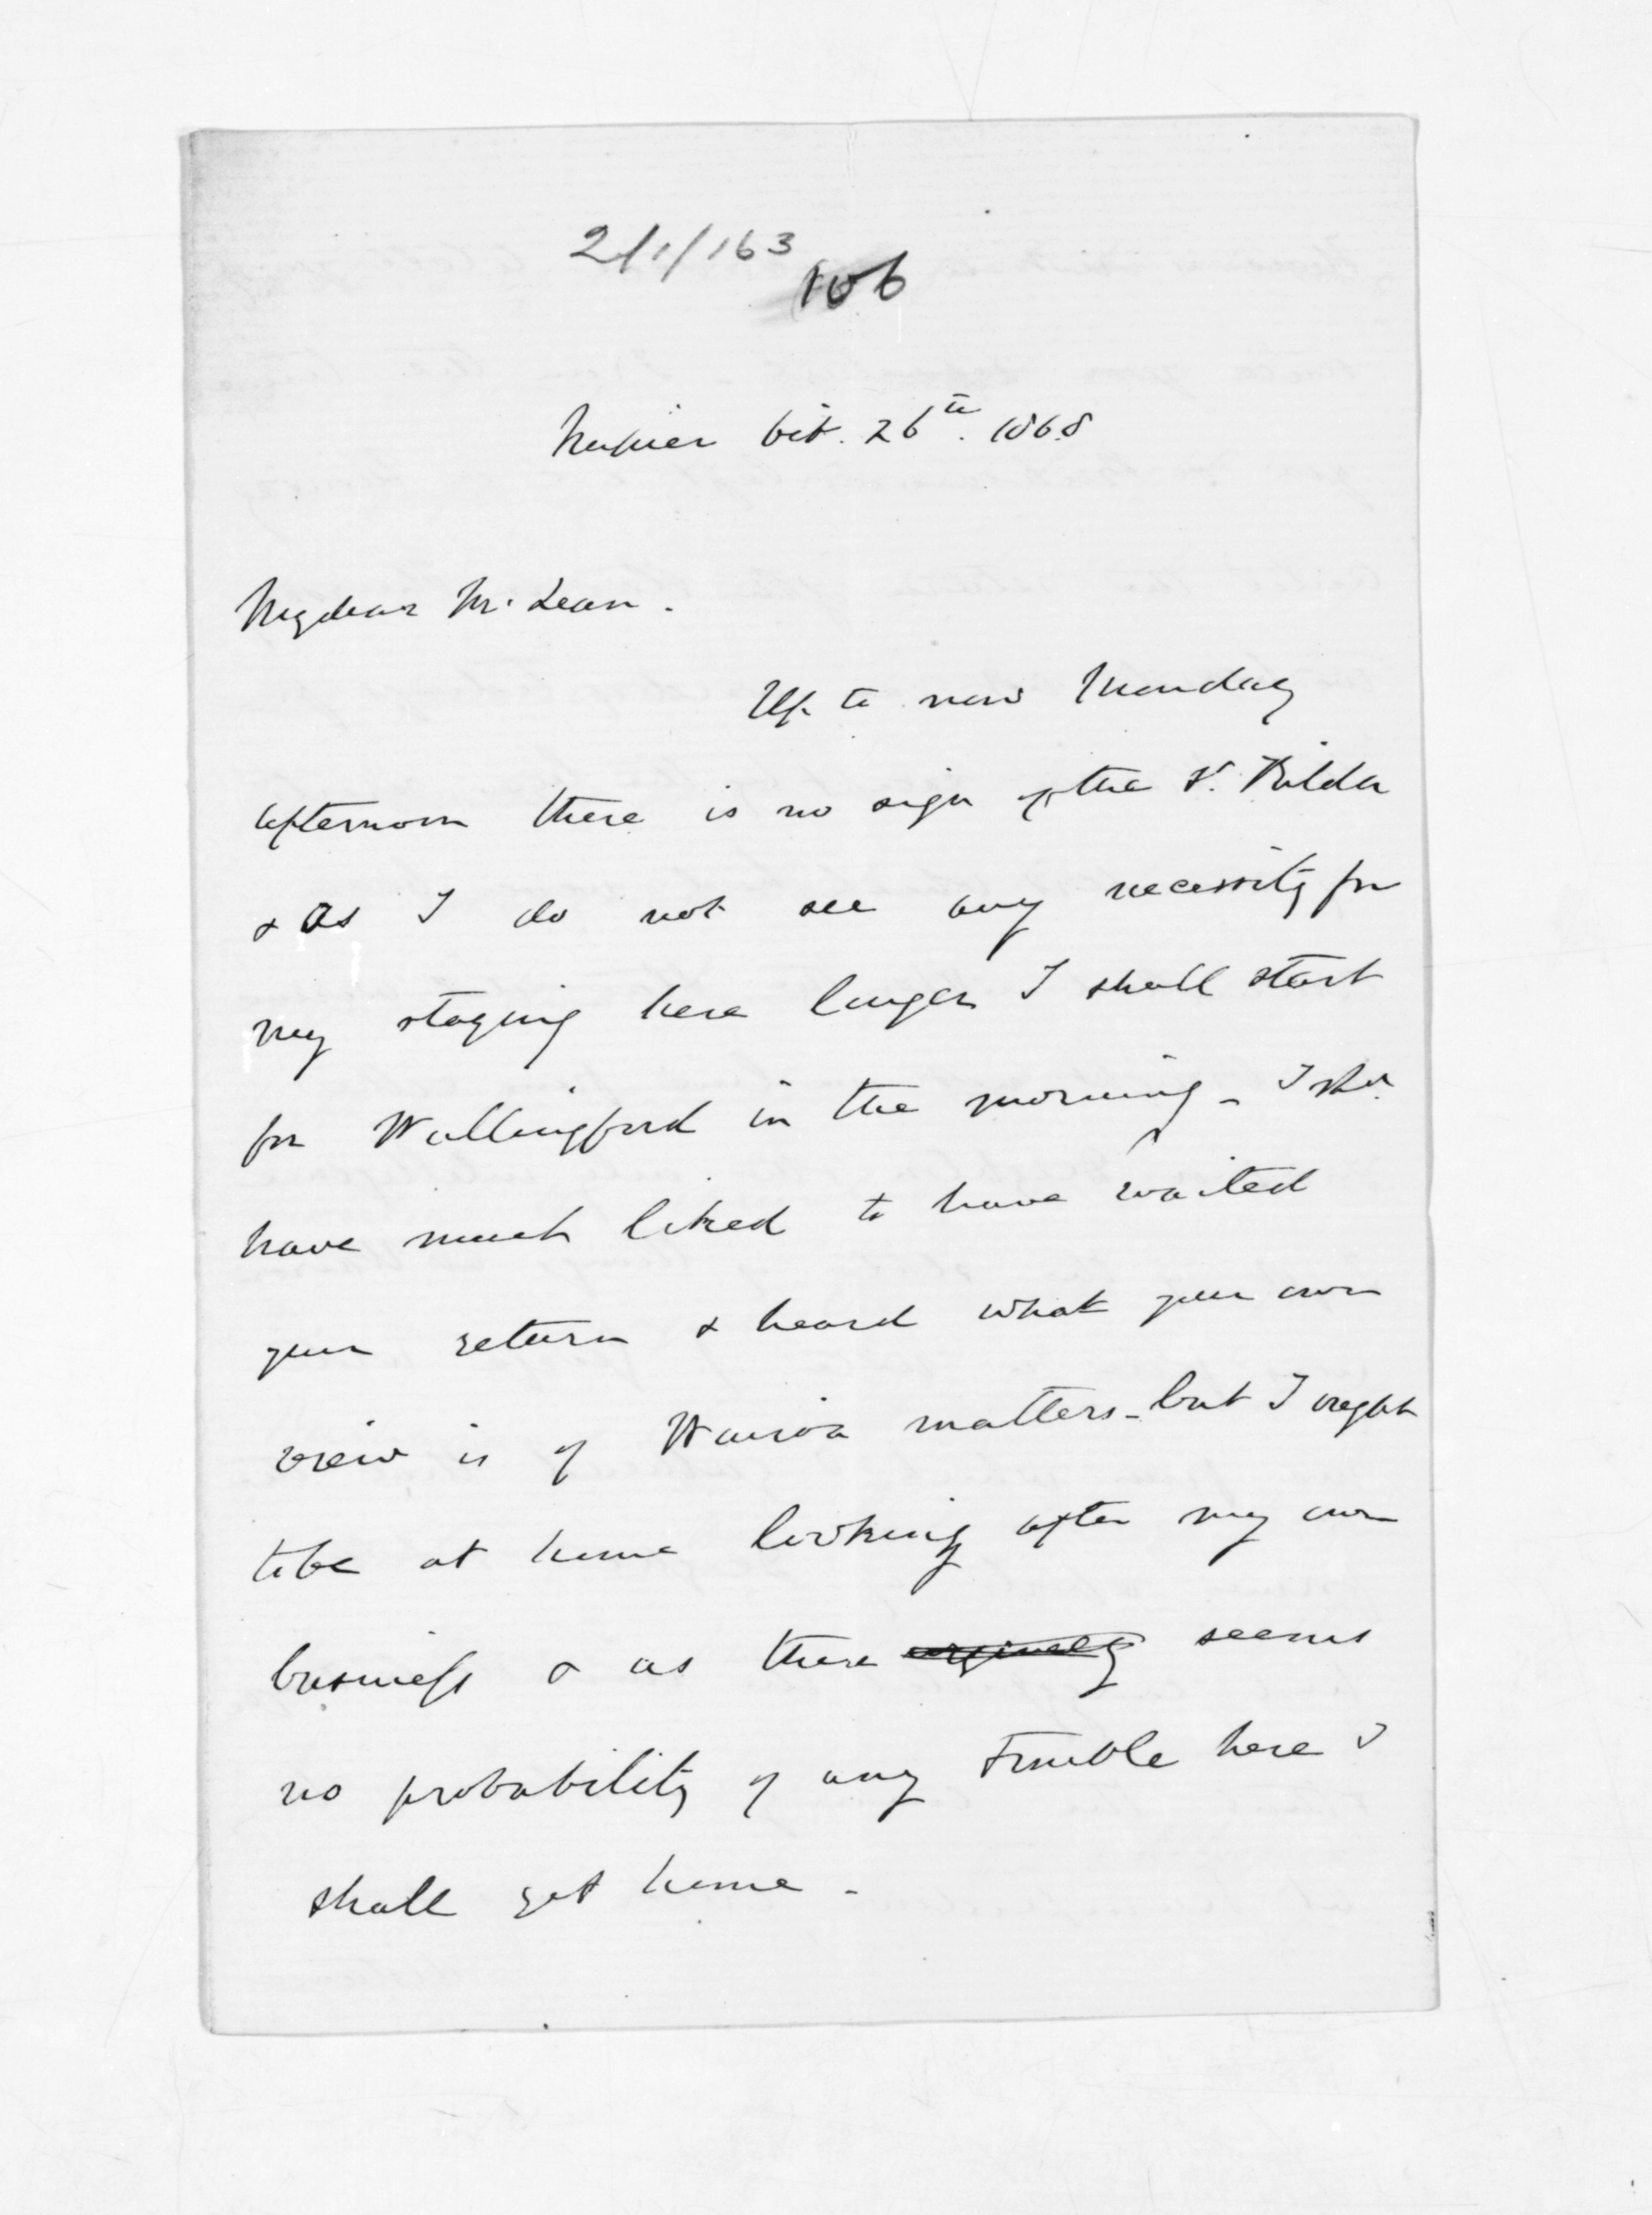 2/1/163
106
Napier Oct. 26th. 1868
My dear McLean.
Up to now Monday
afternoon there is no sign of the St. Kilda
& as I do not see any necessity for
my staying here longer I shall start
for Wallingford in the morning - I shd.
have much liked to have waited
your return & heard what your own
view is of Wairoa matters - but I ought
to be at home looking after my own
business & as there seems
no probability of any trouble here I
shall get home -